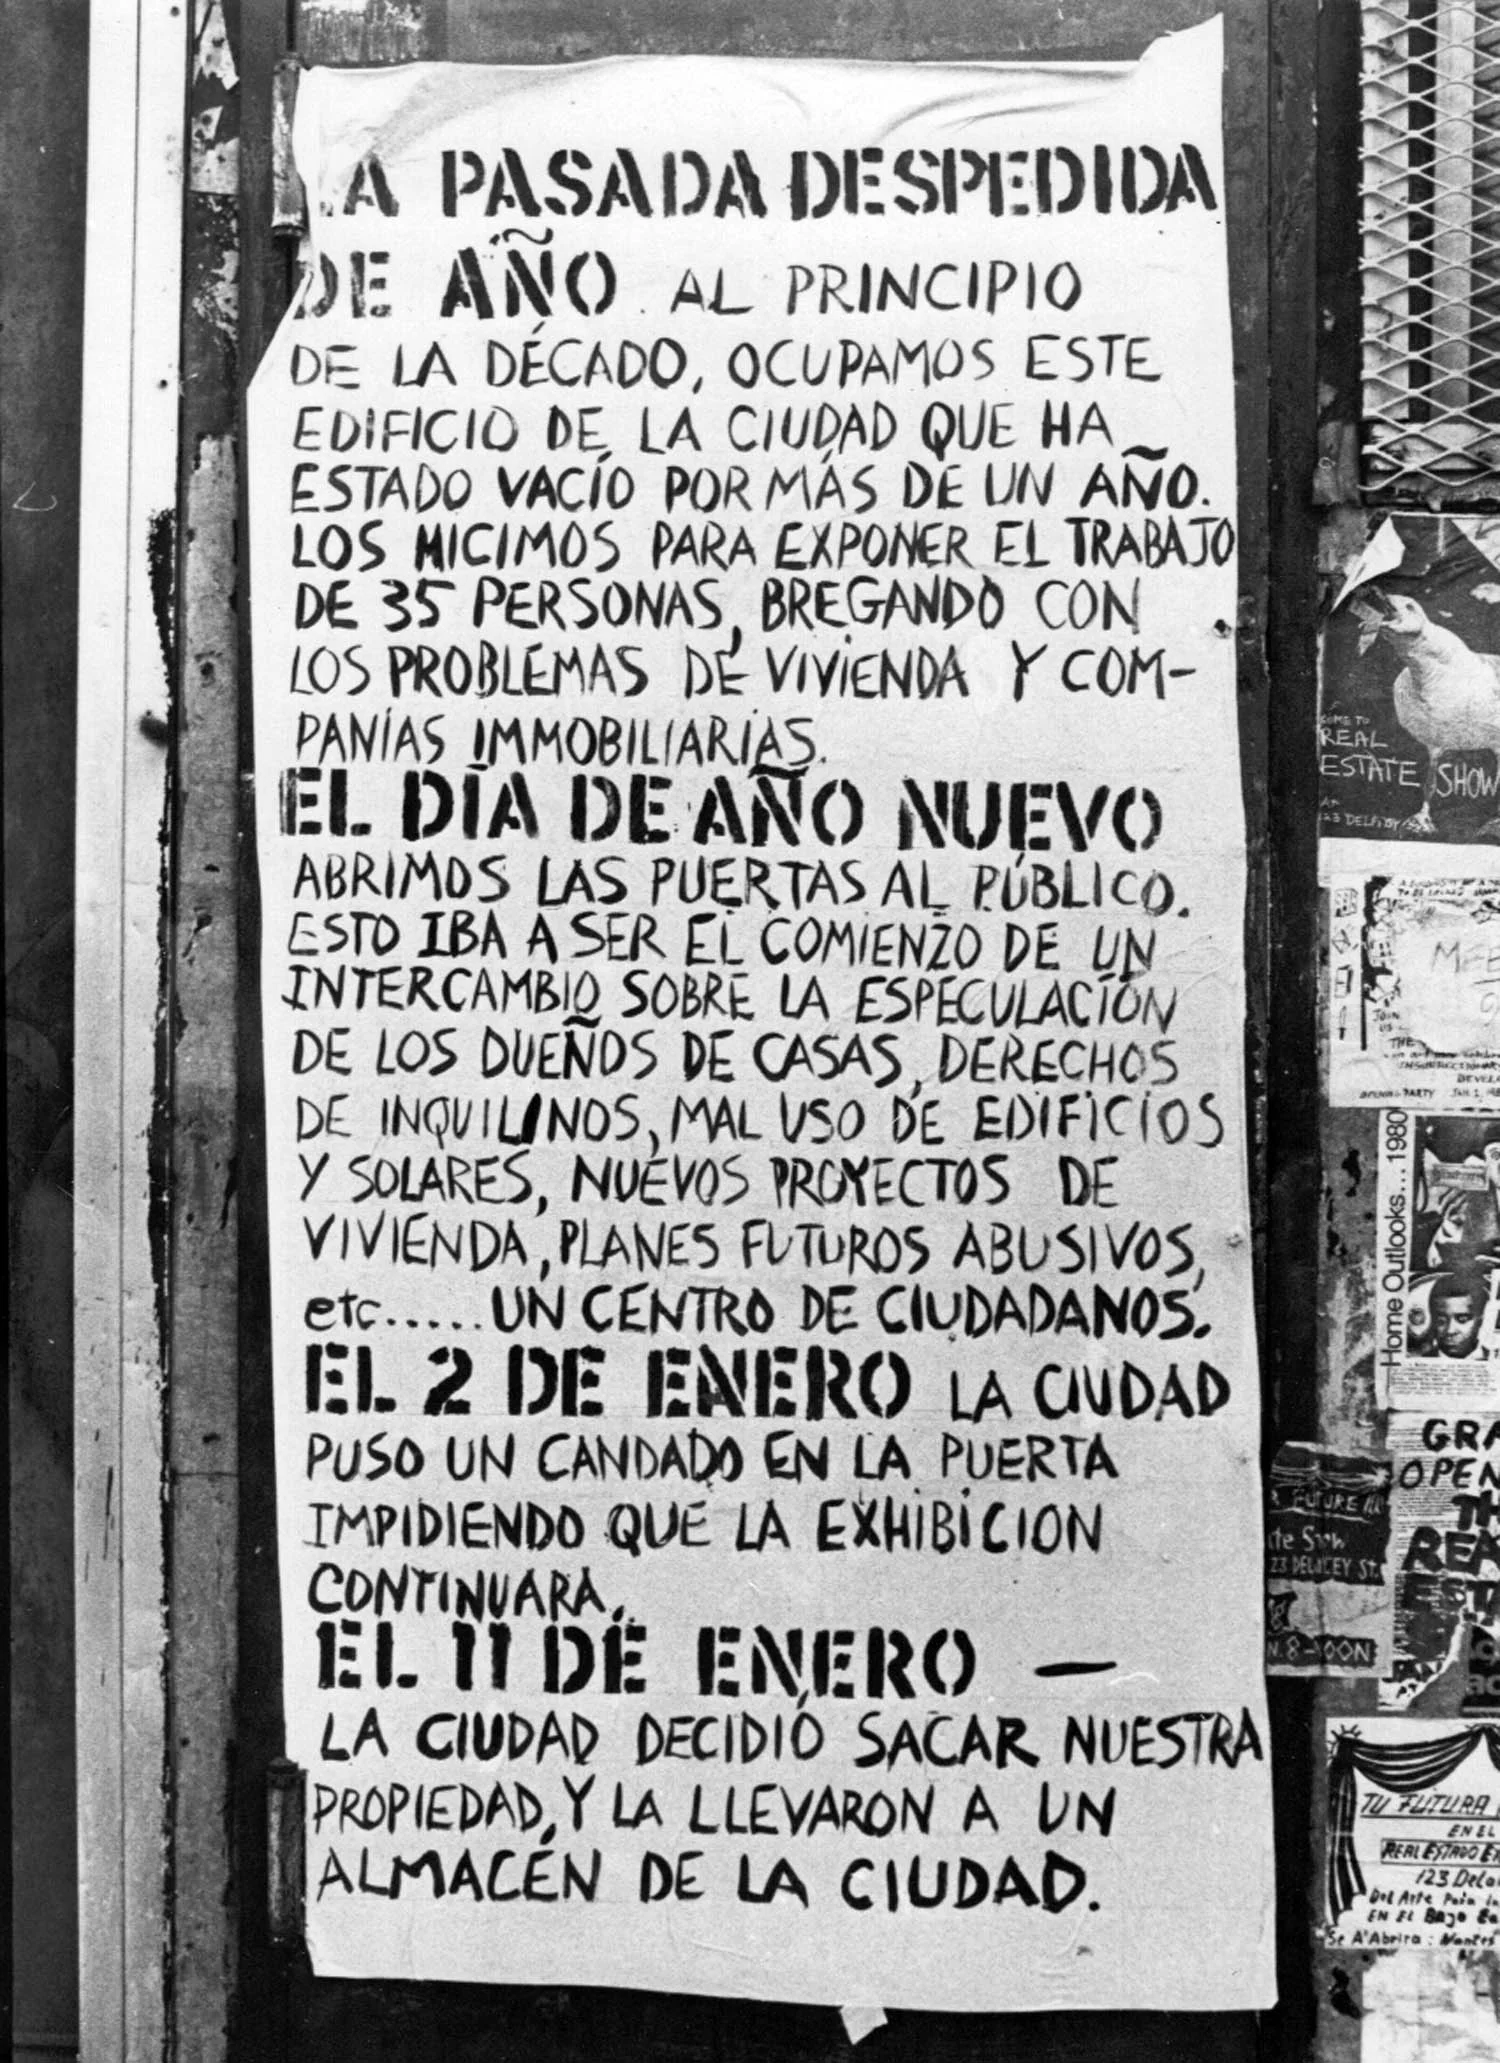 LA PASADA DESPEDIDA
DE AÑO. AL PRINCIPIO
DE LA DÉCADO, OCUPAMOS ESTE
EDIFICIO DE LA CIUDAD QUE HA
ESTADO VACÍO POR MÁS DE UN AÑO.
LOS HICIMOS PARA EXPONER EL TRABAJO
DE 35 PERSONAS, BREGANDO CON
LOS PROBLEMAS DE VIVIENDA Y COM-
PANÍAS IMMOBILIARIAS.
EL DÍA DE AÑO NUEVO
ABRIMOS LAS PUERTAS AL PÚBLICO.
ESTO IBA A SER EL COMIENZO DE UN
INTERCAMBIO SOBRE LA ESPECULACIÓN
DE LOS DUEÑOS DE CASAS, DERECHOS
DE INQUILINOS, MAL USO DE EDIFICIOS
Y SOLARES, NUEVOS PROYECTOS DE
VIVIENDA, PLANES FUTUROS ABUSIVOS,
etc..... UN CENTRO DE CIUDADANOS.
EL 2 DE ENERO LA CIUDAD
PUSO UN CANDADO EN LA PUERTA
IMPIDIENDO QUE LA EXHIBICION
CONTINUARA.
EL 11 DE ENERO —
LA CIUDAD DECIDIÓ SACAR NUESTRA
PROPIEDAD, Y LA LLEVARON A UN
ALMACÉN DE LA CIUDAD.
COME TO
REAL
ESTATE SHOW
AT
JOIN
US
THE
OPENING PARTY JAN. 1
Home Outlooks...1980
OPEN
FUTURE
DELANCEY ST.
TU FUTURA
EN EL
REAL ESTADO
123
Del Arte Para la
EN El Bajo
Se A'Abrira: